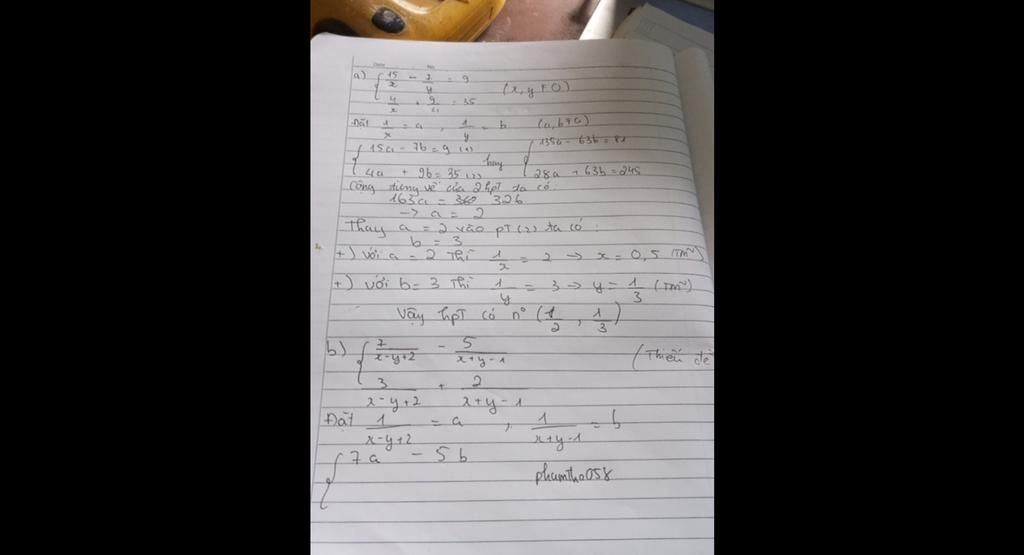 a) { 15/x - 7/y = 9
4/x + 9/y = 35 (x, y ≠ 0)
Đặt 1/x = a , 1/y = b (a, b ≠ 0)
{ 15a - 7b = 9 (1) hay { 135a - 63b = 81
4a + 9b = 35 (2) 28a + 63b = 245
Cộng từng vế của 2 hpt ta có:
163a = 326
-> a = 2
Thay a = 2 vào pT (2) ta có :
b = 3
+) với a = 2 Thì 1/x = 2 -> x = 0,5 (TM)
+) với b = 3 Thì 1/y = 3 -> y = 1/3 (TM)
Vậy hpT có n° (1/2 , 1/3)
b) { 7/(x-y+2) - 5/(x+y-1) (Thiếu đề
3/(x-y+2) + 2/(x+y-1)
Đặt 1/(x-y+2) = a , 1/(x+y-1) = b
{ 7a - 5b
phamtho058